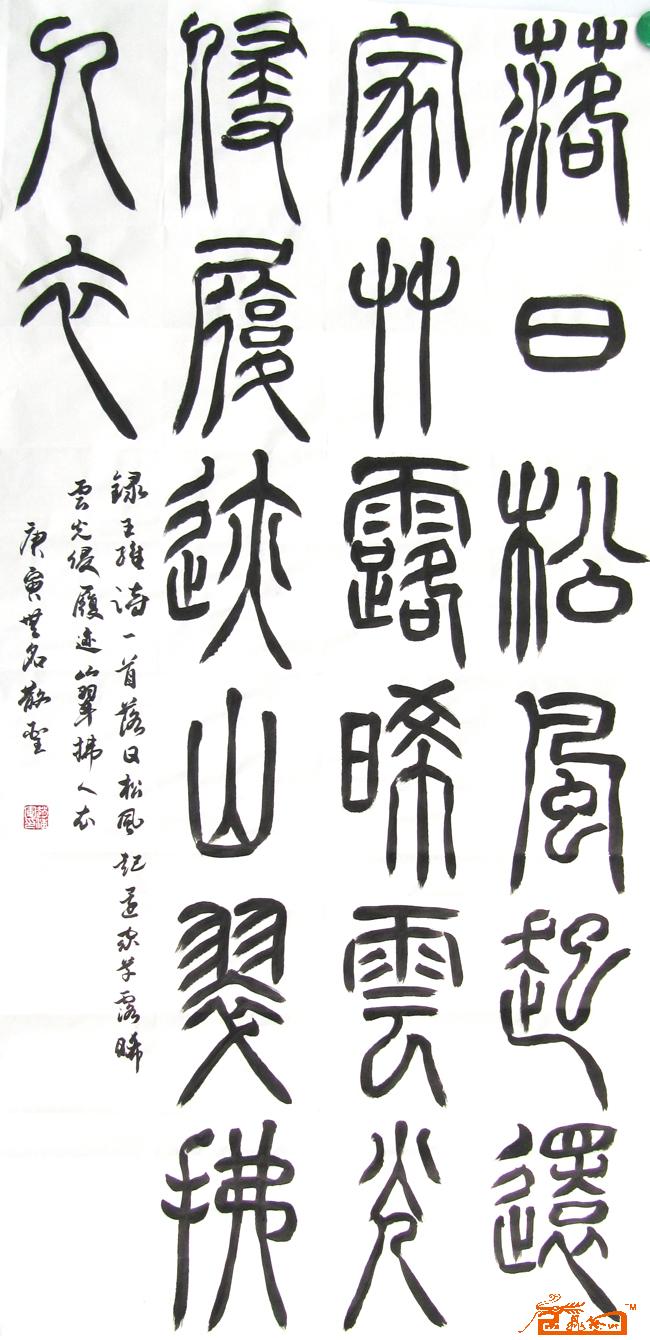 落日松風起還
家艸露晞雲光
侵履迹山翠拂
人衣
録王維诗一首落日松風起還家草露晞
雲光侵履迹山翠拂人衣
庚寅無名散聖